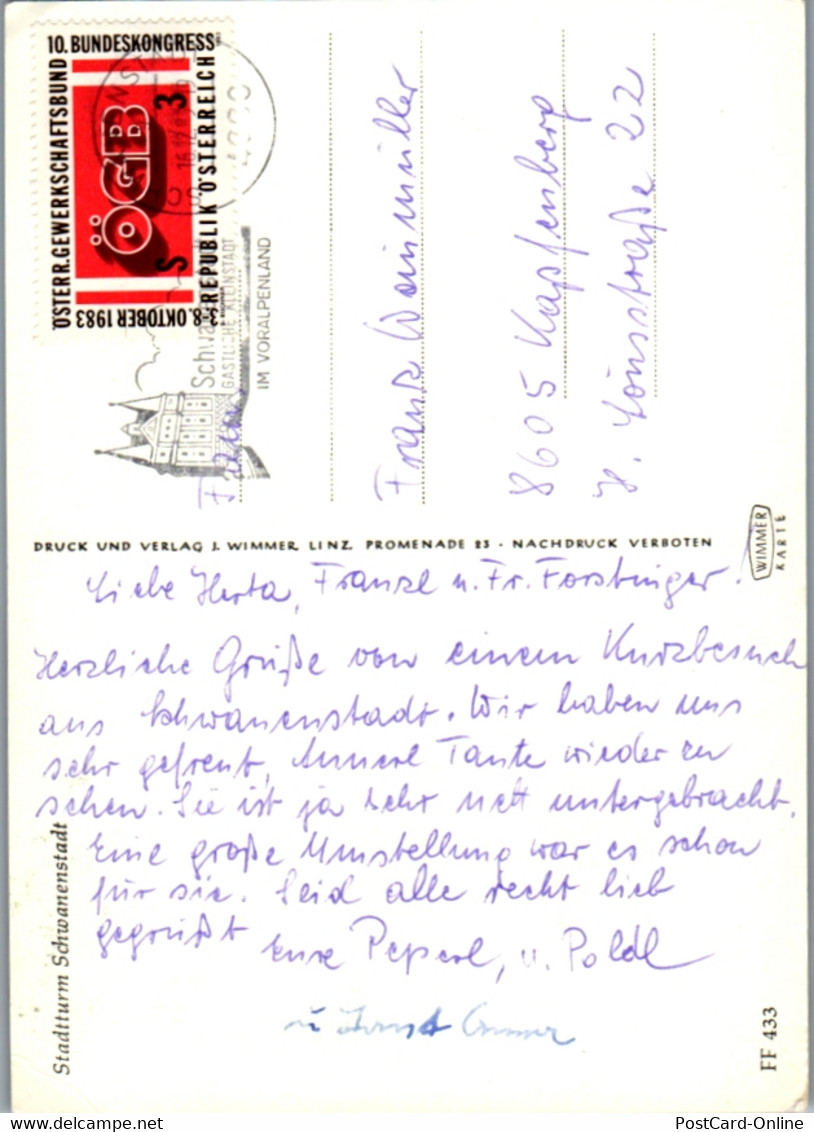 ÖSTERR. GEWERKSCHAFTSBUND
10. BUNDESKONGRESS
ÖGB
S 3
REPUBLIK ÖSTERREICH
3.-8. OKTOBER 1983
GASTLICHE KLEINSTADT
IM VORALPENLAND
Fam.
Franz Weinmüller
8605 Kapfenberg
H. Lönsstraße 22
DRUCK UND VERLAG J. WIMMER, LINZ, PROMENADE 23 · NACHDRUCK VERBOTEN
WIMMER
KARTE
Liebe Herta, Franzl u. Fr. Forstinger!
Herzliche Grüße von einem Kurzbesuch
aus Schwanenstadt. Wir haben uns
sehr gefreut, Annerl Tante wieder zu
sehen. Sie ist ja sehr nett untergebracht.
Eine große Umstellung war es schon
für sie. Seid alle recht lieb
gegrüßt Eure Peperl, u. Poldl
Stadtturm Schwanenstadt
FF 433
PostCard-Online
PostCard-Online